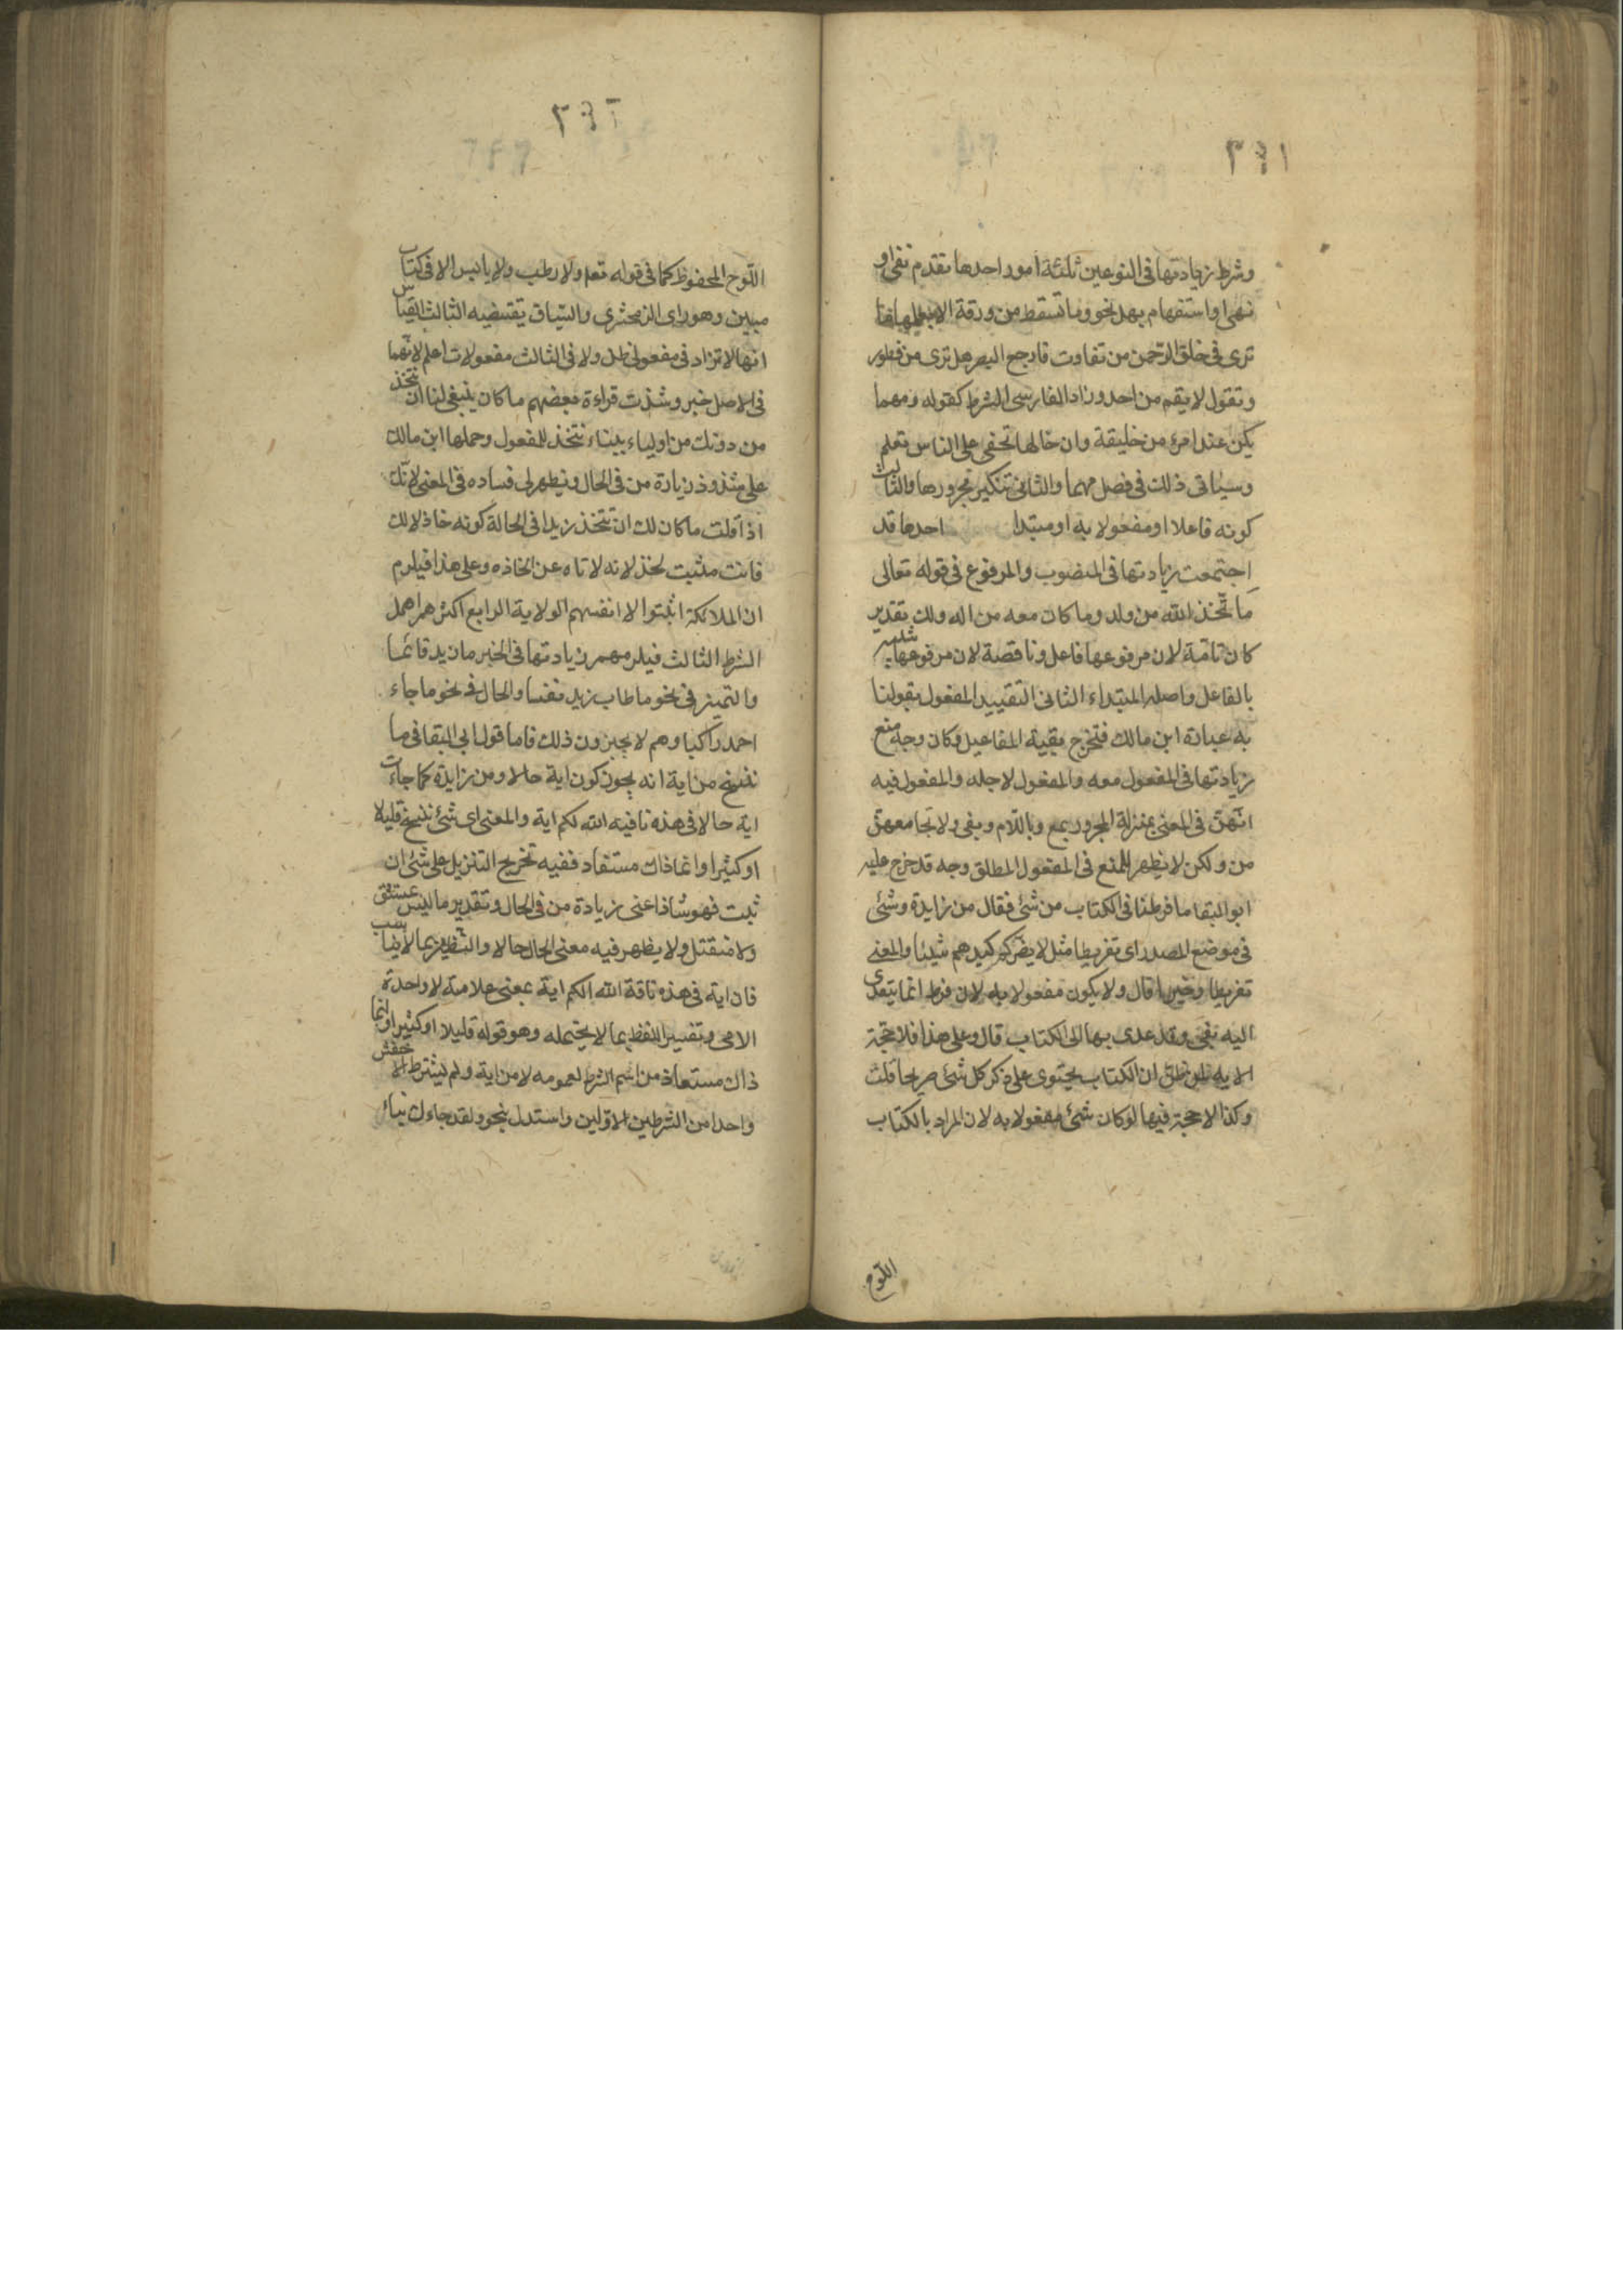 ٣٤١
وشرط زيادتها فى النوعين ثلثة امور احدها تقدم نفى او
نهى او استفهام بهل نحو وما تسقط من ورقة الا يعلمها ما
ترى فى خلق الرحمن من تفاوت فارجع البصر هل ترى من فطور
وتقول لا يقم من احد وزاد الفارسى الشرط كقوله ومهما
يكن عند امرء من خليقة وان خالها تخفى على الناس تعلم
وسياتى ذلك فى فصل مهما والثانى تنكير مجرورها والثالث
كونه فاعلا او مفعولا به او مبتدا احدها قد
اجتمعت زيادتها فى المنصوب والمرفوع فى قوله تعالى
ما تخذ الله من ولد وما كان معه من اله ولك تقدير
كان تامة لان مرفوعها فاعل وناقصة لان مرفوعها شبيه
بالفاعل واصله المبتداء الثانى التقييد المفعول بقولنا
به عبارة ابن مالك فتخرج بقية المفاعيل وكان وجه منع
زيادتها فى المفعول معه والمفعول لاجله والمفعول فيه
انهن فى المعنى بمنزلة المجرور بمع وباللام وبفى ولا تجامعهن
من ولكن لا يظهر للمنع فى المفعول المطلق وجه قد خرج عليه
ابو البقا ما فرطنا فى الكتاب من شئ فقال من زايدة وشئ
فى موضع المصدر اى تفريطا مثل لا يضركم كيدهم شيئا والمعنى
تفريطا وخيرا قال ولا يكون مفعولا به لان فرط انما يتعدى
اليه بفى وقد عدى بها الى الكتاب قال وعلى هذا فلا حجة
الايه لمن ظن ان الكتاب يحتوى على ذكر كل شئ صريحا قلت
وكذا لا حجة فيها لو كان شئ مفعولا به لان المراد بالكتاب
اللوح
٣٤٢
اللوح المحفوظ كما فى قوله تعم ولا رطب ولا يابس الا فى كتاب
مبين وهو راى الزمخشرى والسياق يقتضيه الثالث القياس
انها لا تزاد فى مفعولى ظن ولا فى الثالث مفعولات اعلم لانهما
فى الاصل خبر وشذت قراءة بعضهم ما كان ينبغى لنا ان نتخذ
من دونك من اولياء ببناء نتخذ للمفعول وحملها ابن مالك
على شذوذ زيادة من فى الحال ويظهر لى فساده فى المعنى لانك
اذا قلت ما كان لك ان تتخذ زيدا فى الحالة كونه خاذلا لك
فانت مثبت لخذلانه لا تاه عن اتخاذه وعلى هذا فيلزم
ان الملائكة اثبتوا لا انفسهم الولاية الرابع اكثرهم اهمل
الشرط الثالث فيلزمهم زيادتها فى الخبر ما زيد قائما
والتميز فى نحو ما طاب زيد نفسا والحال فى نحو ما جاء
احد راكبا وهم لا يجيزون ذلك فاما قول ابى البقا فى ما
ننسخ من اية انه يجوز كون اية حالا ومن زايدة كما جاءت
اية حالا فى هذه ناقية الله لكم اية والمعنى اى شئ ننسخ قليلا
او كثيرا وانما ذاك مستفاد ففيه تخريج التنزيل على شئ ان
ثبت فهو شاذ اعنى زيادة من فى الحال وتقدير ما ليس بمشتق
ولا منتقل ولا يظهر فيه معنى الحال حالا والتنظير بما لا يناسب
فان اية فى هذه ناقة الله لكم اية بمعنى علامة لا واحدة
الاى وتفسير اللفظ بما لا يحتمله وهو قوله قليلا او كثيرا وانما
ذاك مستعاذ من اسم الشرط لعمومه لا من اية ولم يشترط الاخفش
واحدا من الشرطين الاولين واستدل بنحو ولقد جاءك نباء